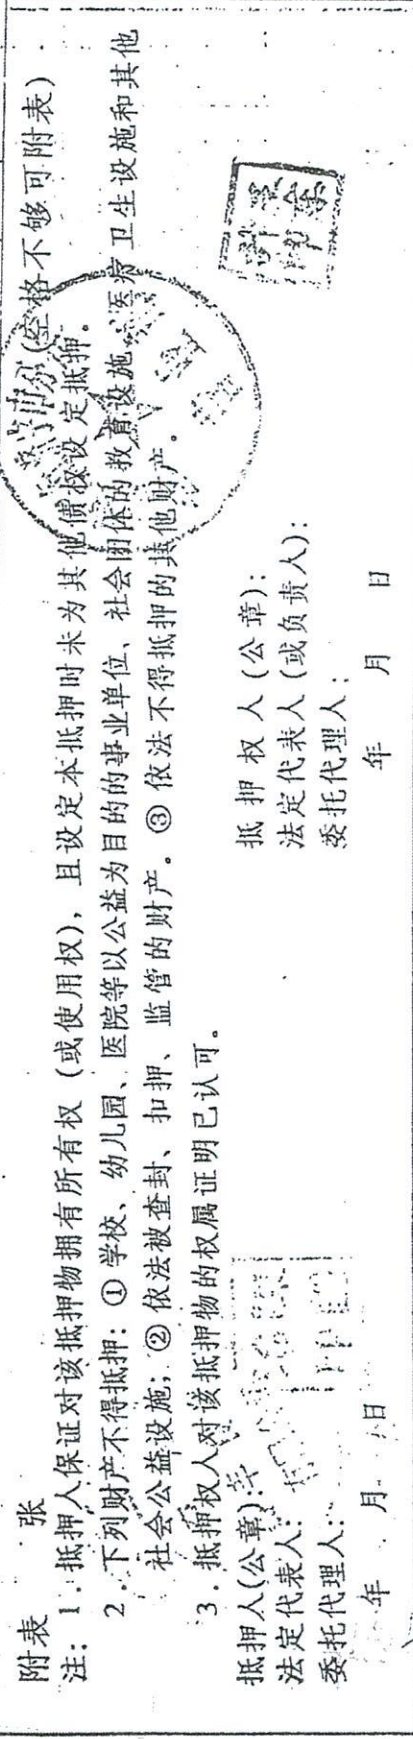 附表 张 (空格不够可附表)
注: 1.抵押人保证对该抵押物拥有所有权 (或使用权), 且设定本抵押时未为其他债权设定抵押.
2.下列财产不得抵押: ①学校、幼儿园、医院等以公益为目的的事业单位、社会团体的教育设施、医疗卫生设施和其他
社会公益设施; ②依法被查封、扣押、监管的财产。③依法不得抵押的其他财产。
3.抵押权人对该抵押物的权属证明已认可。
抵押人(公章): 抵押权人(公章):
法定代表人: 法定代表人(或负责人):
委托代理人: 委托代理人:
年 月 日 年 月 日